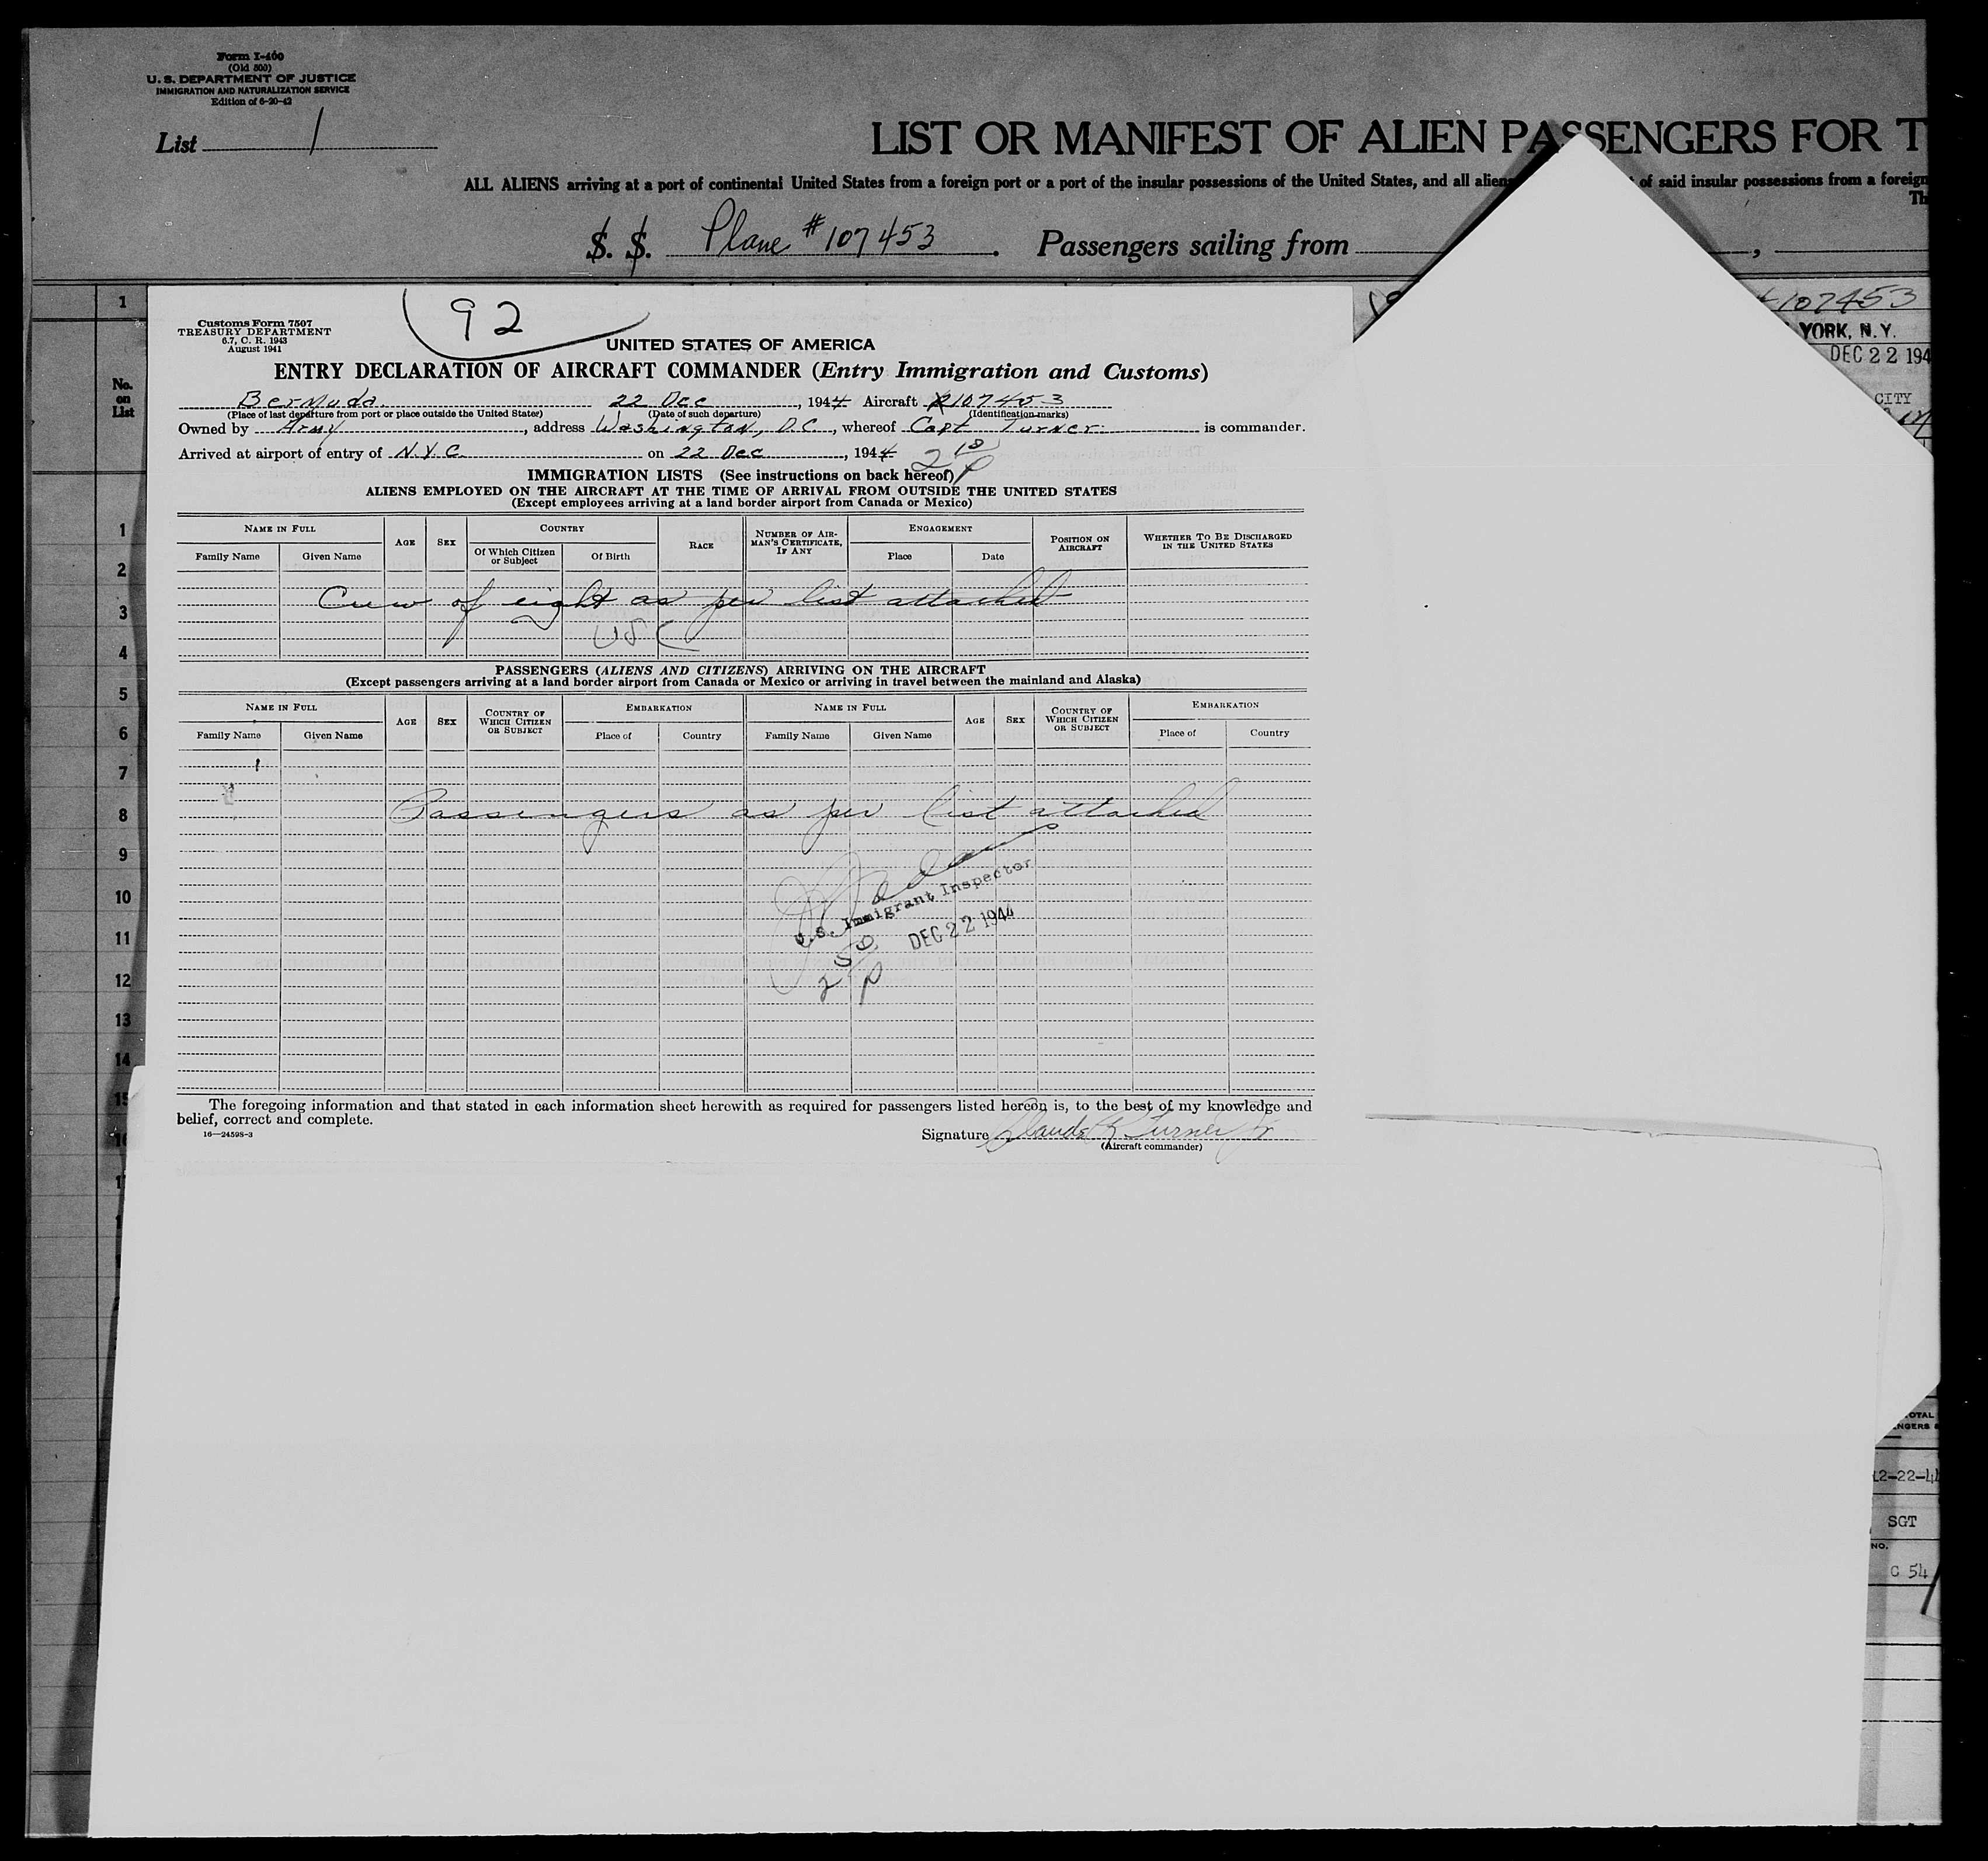 Form I-400
(Old 500)
U. S. DEPARTMENT OF JUSTICE
IMMIGRATION AND NATURALIZATION SERVICE
Edition of 6-20-42
List 1
LIST OR MANIFEST OF ALIEN PASSENGERS FOR T
ALL ALIENS arriving at a port of continental United States from a foreign port or a port of the insular possessions of the United States, and all aliens of said insular possessions from a foreign
Th
S. S. Plane #107453. Passengers sailing from ,
107453
YORK, N.Y.
DEC 22 194
CITY
No. on List
1
92
Customs Form 7507
TREASURY DEPARTMENT
6.7, C. R. 1943
August 1941
UNITED STATES OF AMERICA
ENTRY DECLARATION OF AIRCRAFT COMMANDER (Entry Immigration and Customs)
Bermuda 22 Dec, 1944 Aircraft 107453
(Place of last departure from port or place outside the United States) (Date of such departure) (Identification marks)
Owned by Army, address Washington, D.C., whereof Capt Turner is commander.
Arrived at airport of entry of N.Y.C. on 22 Dec, 1944
IMMIGRATION LISTS (See instructions on back hereof)
ALIENS EMPLOYED ON THE AIRCRAFT AT THE TIME OF ARRIVAL FROM OUTSIDE THE UNITED STATES
(Except employees arriving at a land border airport from Canada or Mexico)
NAME IN FULL AGE SEX COUNTRY RACE NUMBER OF AIRMAN'S CERTIFICATE, IF ANY ENGAGEMENT POSITION ON AIRCRAFT WHETHER TO BE DISCHARGED IN THE UNITED STATES
Family Name Given Name Of Which Citizen or Subject Of Birth Place Date
Crew of eight as per list attached
USC
PASSENGERS (ALIENS AND CITIZENS) ARRIVING ON THE AIRCRAFT
(Except passengers arriving at a land border airport from Canada or Mexico or arriving in travel between the mainland and Alaska)
NAME IN FULL AGE SEX COUNTRY OF WHICH CITIZEN OR SUBJECT EMBARKATION NAME IN FULL AGE SEX COUNTRY OF WHICH CITIZEN OR SUBJECT EMBARKATION
Family Name Given Name Place of Country Family Name Given Name Place of Country
Passengers as per list attached
U.S. Immigrant Inspector
DEC 22 1944
The foregoing information and that stated in each information sheet herewith as required for passengers listed hereon is, to the best of my knowledge and
belief, correct and complete.
16—24598-3
Signature Claude K Turner Jr
(Aircraft commander)
1
2
3
4
5
6
7
8
9
10
11
12
13
14
15
16
OTAL
NGERS
12-22-44
SGT
NO.
C 54